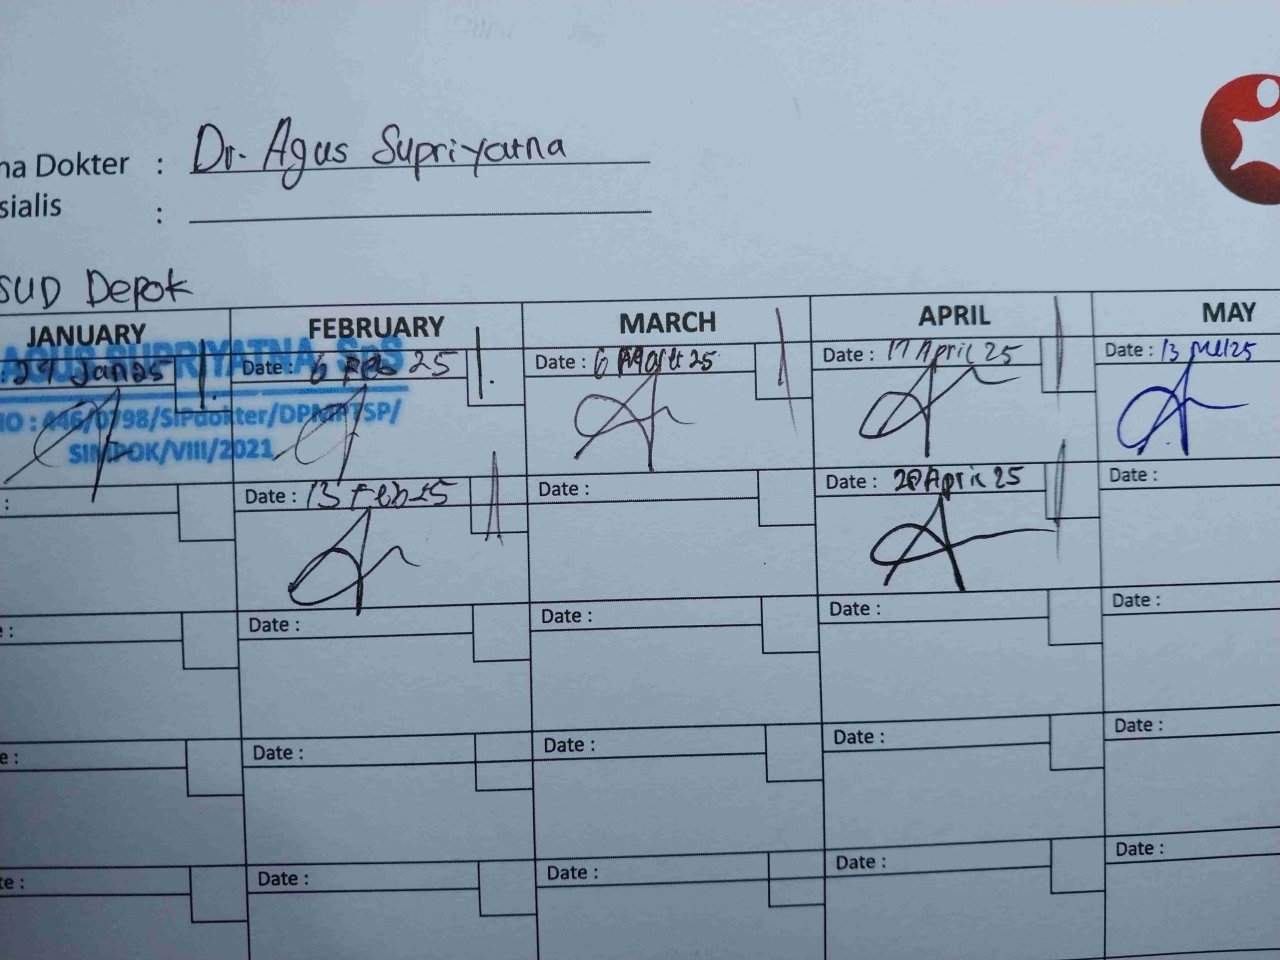 na Dokter : Dr. Agus Supriyatna
sialis :
SUD Depok
JANUARY FEBRUARY MARCH APRIL MAY
AGUS SUPRIYATNA, SpS
: 29 Jan 25 Date : 6 Feb 25 Date : 6 Maret 25 Date : 17 April 25 Date : 13 Mei 25
NO : 446/0798/SIPdokter/DPMPTSP/
SIMPOK/VIII/2021
: Date : 13 Feb 25 Date : Date : April 25 Date :
e : Date : Date : Date : Date :
e : Date : Date : Date : Date :
te : Date : Date : Date : Date :